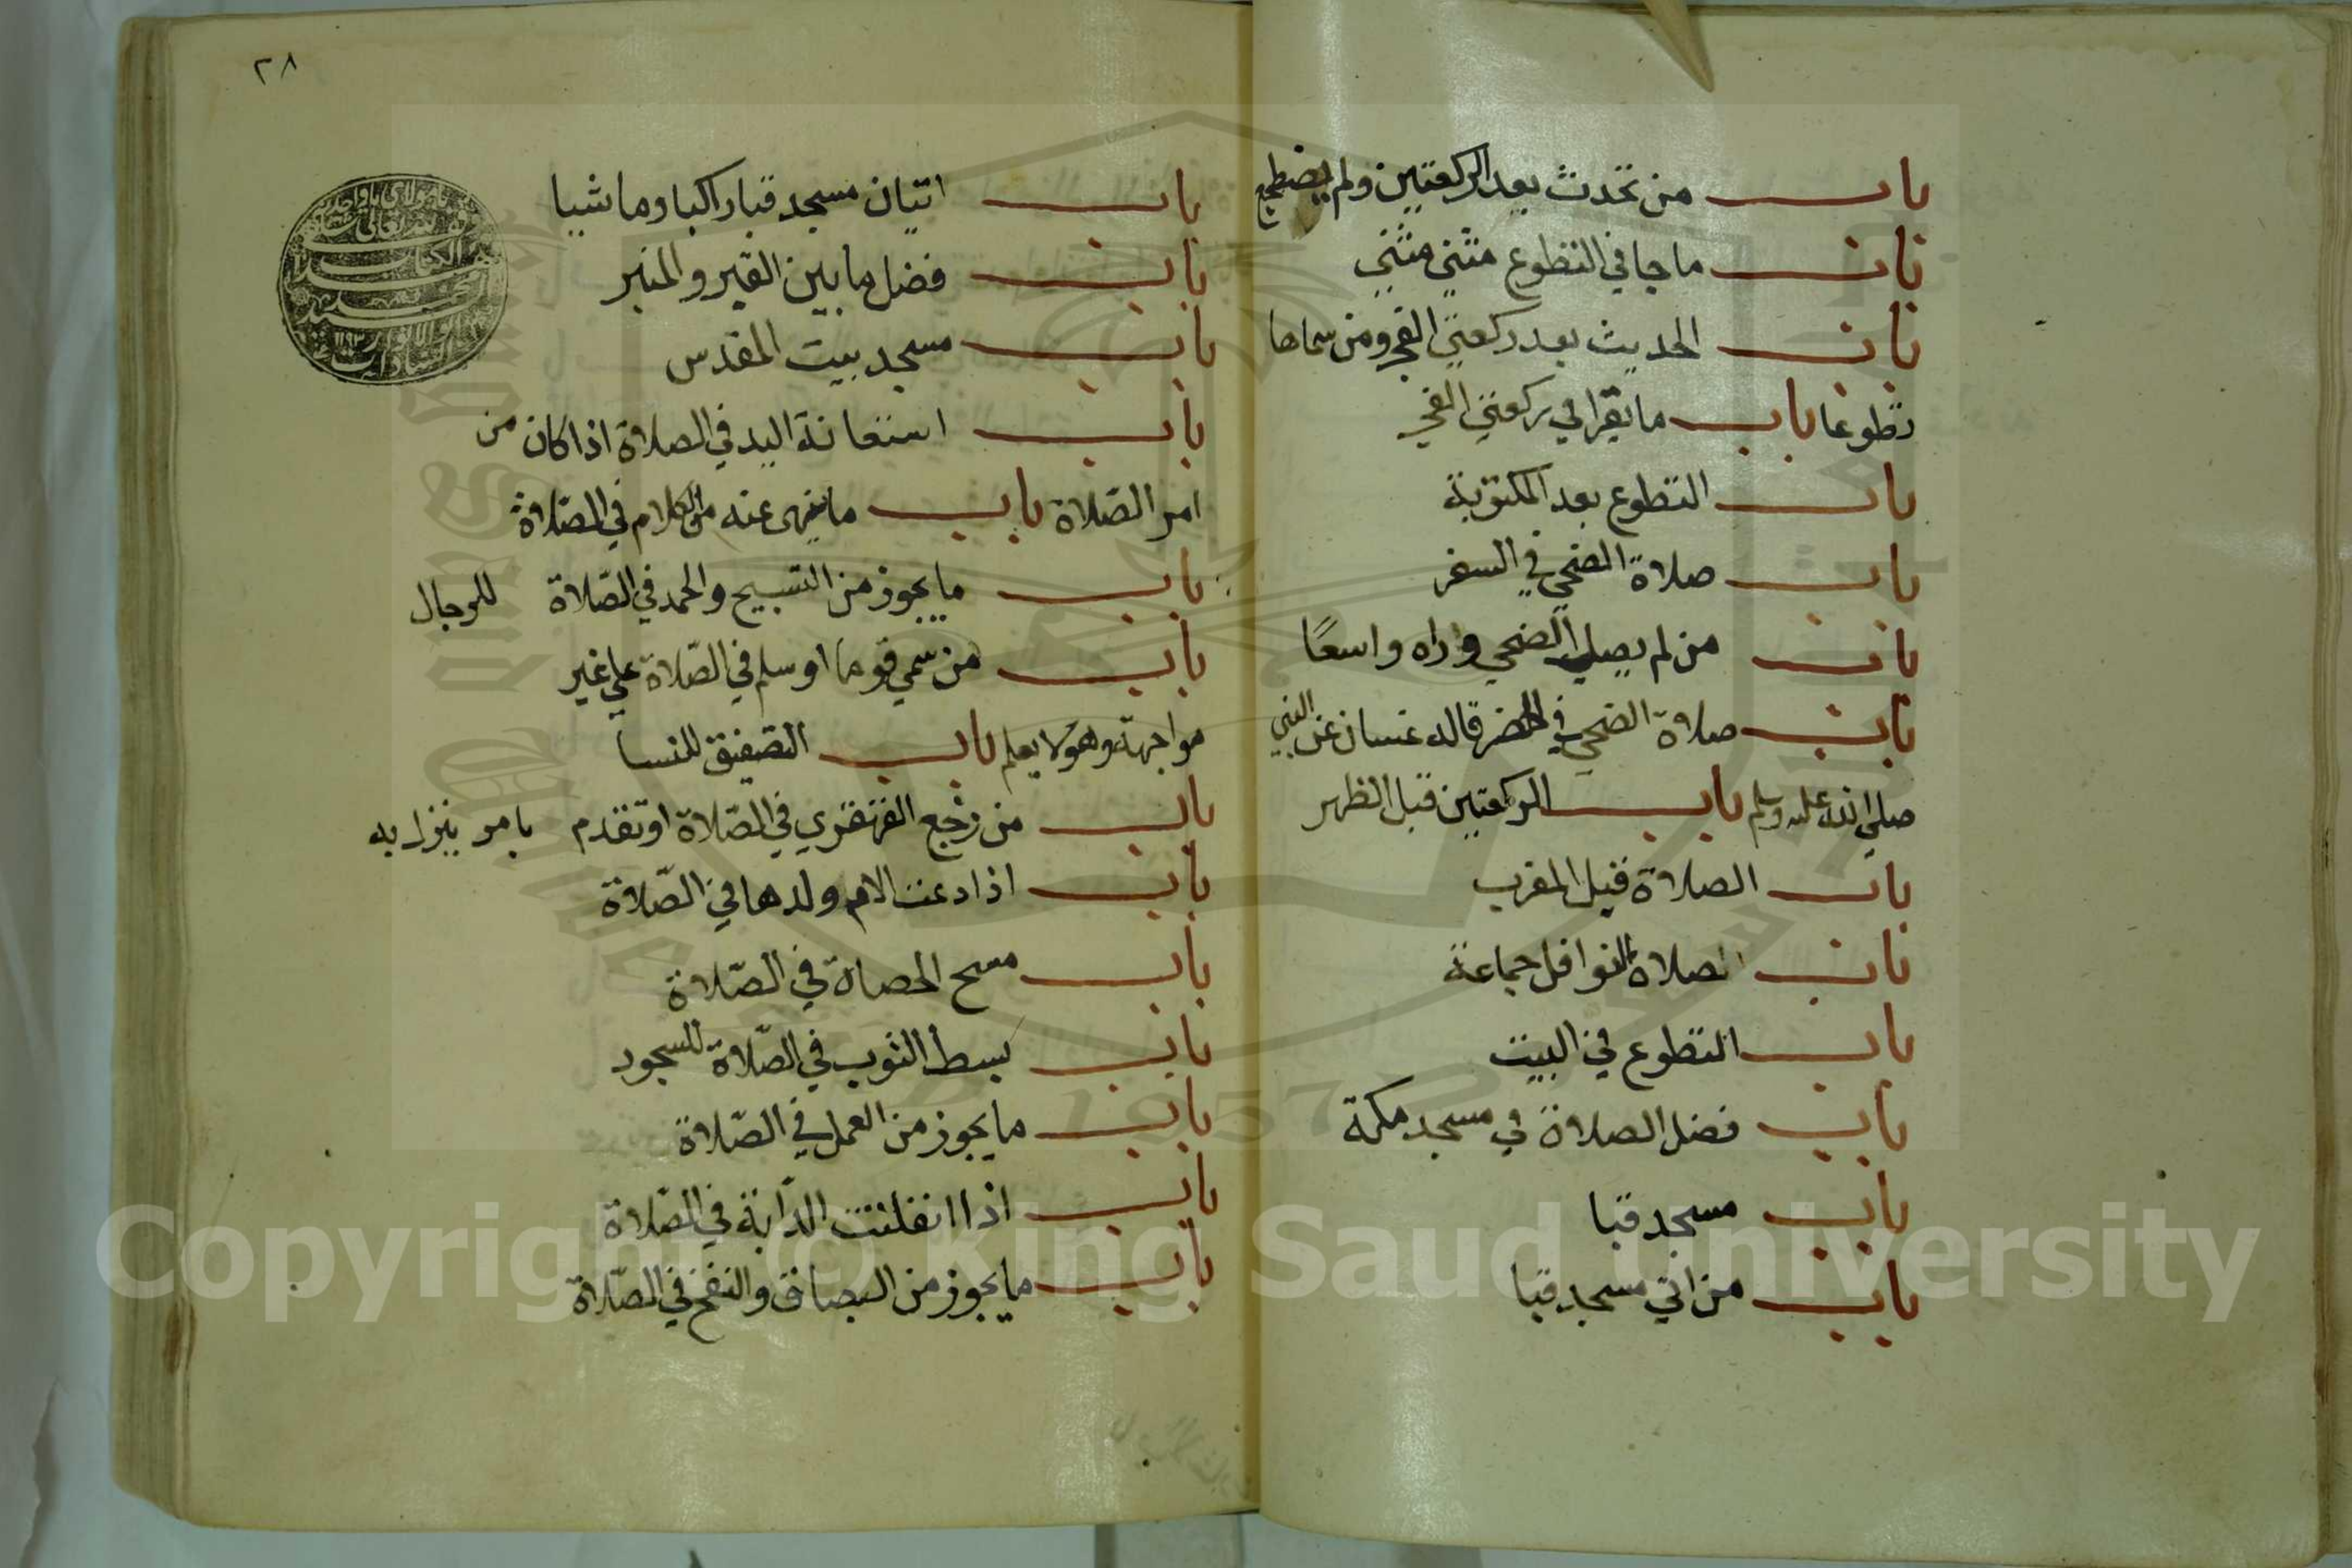 باب من تحدث بعد الركعتين ولم يضطجع
باب ما جا في التطوع مثني مثني
باب الحديث بعد ركعتي الفجر ومن سماها
تطوعا باب ما يقرا في ركعتي الفجر
باب التطوع بعد المكتوبة
باب صلاة الضحي في السفر
باب من لم يصلي الضحي وراه واسعًا
باب صلاة الضحي في الحضر قاله عتبان عن النبي
صلي الله عليه وسلم باب الركعتين قبل الظهر
باب الصلاة قبل المغرب
باب الصلاة النوافل جماعة
باب التطوع في البيت
باب فضل الصلاة في مسجد مكة
باب مسجد قبا
باب من اتي مسجد قبا
٢٨
باب اتيان مسجد قبا راكبا وماشيا
باب فضل ما بين القبر والمنبر
باب مسجد بيت المقدس
باب استعانة اليد في الصلاة اذا كان من
امر الصلاة باب ما ينهى عنه من الكلام في الصلاة
باب ما يجوز من التسبيح والحمد في الصلاة للرجال
باب من سمي قوما او سلم في الصلاة علي غير
مواجهة وهو لا يعلم باب التصفيق للنسا
باب من رجع القهقري في الصلاة او تقدم بامر ينزل به
باب اذا دعت الام ولدها في الصلاة
باب مسح الحصاة في الصلاة
باب بسط الثوب في الصلاة للسجود
باب ما يجوز من العمل في الصلاة
باب اذا انفلتت الدابة في الصلاة
باب ما يجوز من البصاق والنفخ في الصلاة
Copyright © King Saud University
1957